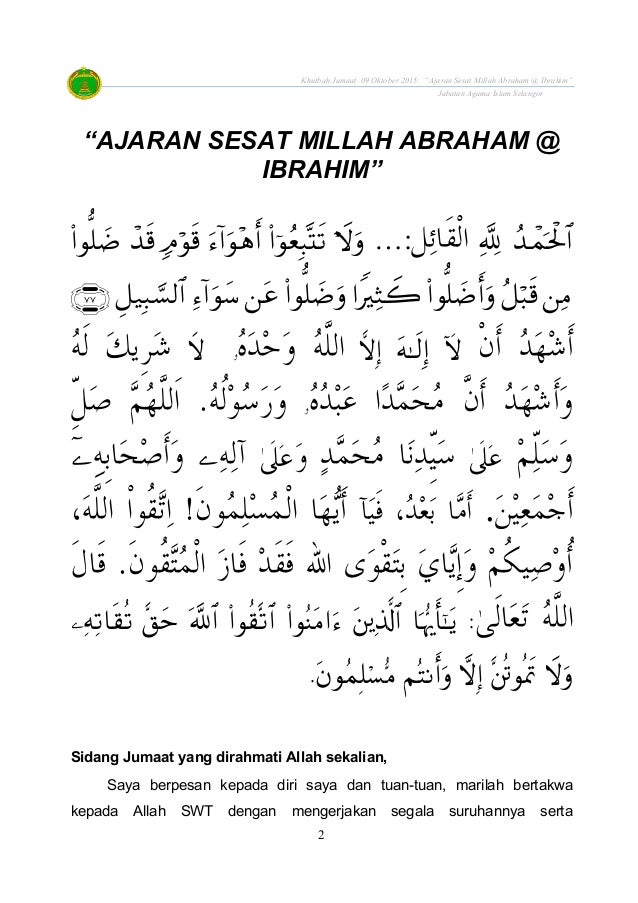 Khutbah Jumaat: 09 Oktober 2015: "Ajaran Sesat Millah Abraham @ Ibrahim"
Jabatan Agama Islam Selangor
“AJARAN SESAT MILLAH ABRAHAM @
IBRAHIM”
ٱلْحَمْدُ لِلَّهِ الْقَائِلِ:... وَلَا تَتَّبِعُوٓا۟ أَهْوَآءَ قَوْمٍۢ قَدْ ضَلُّوا۟
مِن قَبْلُ وَأَضَلُّوا۟ كَثِيرًۭا وَضَلُّوا۟ عَن سَوَآءِ ٱلسَّبِيلِ ٧٧
أَشْهَدُ أَنْ لَآ إِلَـٰهَ إِلَّا اللَّهُ وَحْدَهُۥ لَا شَرِيكَ لَهُ
وَأَشْهَدُ أَنَّ مُحَمَّدًا عَبْدُهُۥ وَرَسُوْلُهُ. اَللَّهُمَّ صَلِّ
وَسَلِّمْ عَلَىٰ سَيِّدِنَا مُحَمَّدٍ وَعَلَىٰ آلِهِۦ وَأَصْحَابِهِۦٓ
أَجْمَعِيْنَ. أَمَّا بَعْدُ، فَيَآ أَيُّهَا الْمُسْلِمُونَ! اِتَّقُوا۟ اللَّهَ،
أُوْصِيكُمْ وَإِيَّايَ بِتَقْوَى الله فَقَدْ فَازَ الْمُتَّقُونَ. قَالَ
اللَّهُ تَعَالَىٰ: يَـٰٓأَيُّهَا ٱلَّذِينَ ءَامَنُوا۟ ٱتَّقُوا۟ ٱللَّهَ حَقَّ تُقَاتِهِۦ
وَلَا تَمُوتُنَّ إِلَّا وَأَنتُم مُّسْلِمُونَ.
Sidang Jumaat yang dirahmati Allah sekalian,
Saya berpesan kepada diri saya dan tuan-tuan, marilah bertakwa
kepada Allah SWT dengan mengerjakan segala suruhannya serta
2